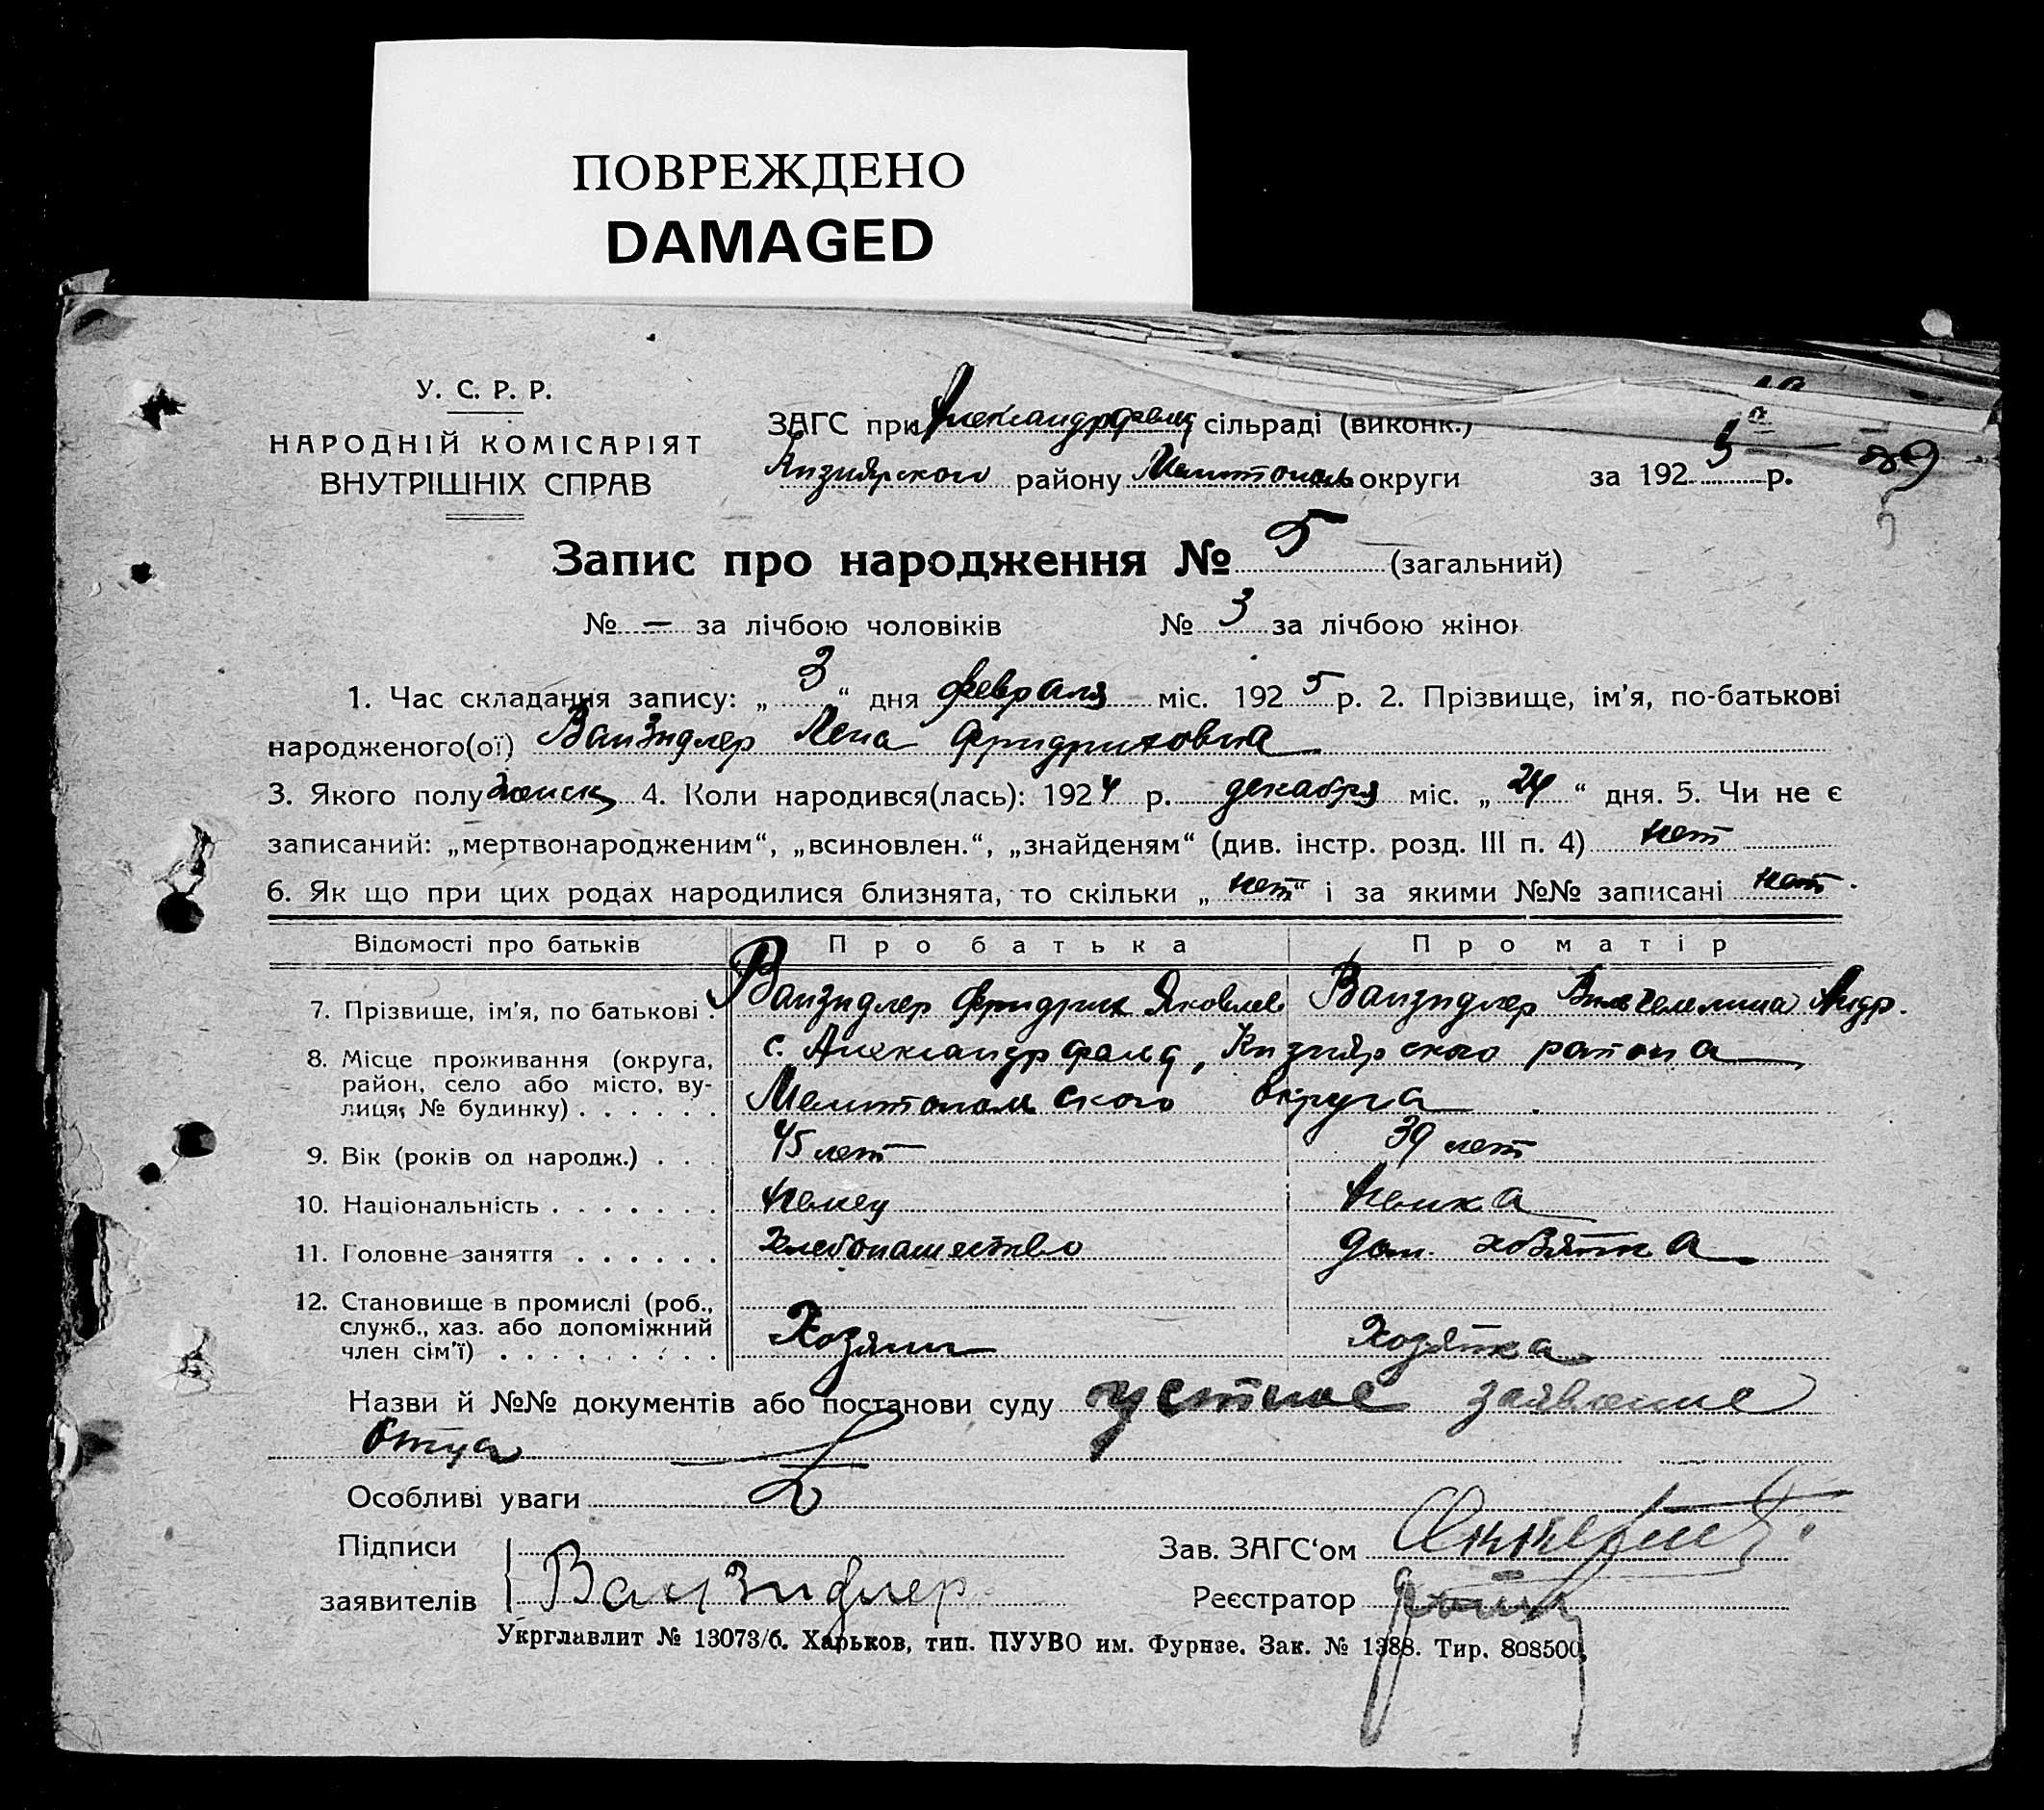 ПОВРЕЖДЕНО
DAMAGED
У. С. Р. Р.
НАРОДНІЙ КОМІСАРІЯТ
ВНУТРІШНІХ СПРАВ
ЗАГС при Александрфельд сільраді (виконк.)
Кизиярского району Мелитополь округи за 1925 р. 89
5
Запис про народження № 5 (загальний)
№ — за лічбою чоловіків № 3 за лічбою жінок
1. Час складання запису: „ 3 “ дня февраля міс. 1925 р. 2. Прізвище, ім'я, по-батькові
народженого(ої) Ванзидлер Лена Фридриховна
3. Якого полу женск 4. Коли народився(лась): 1924 р. декабря міс. „ 24 “ дня. 5. Чи не є
записаний: „мертвонародженим“, „всиновлен.“, „знайденям“ (див. інстр. розд. III п. 4) нет
6. Як що при цих родах народилися близнята, то скільки „ нет “ і за якими №№ записані нет.
Відомості про батьків Про батька Про матір
7. Прізвище, ім'я, по батькові . Ванзидлер Фридрих Яковлев Ванзидлер Вильгелмина Андр.
8. Місце проживання (округа, район, село або місто, вулиця, № будинку) . . . . . . с. Александрфельд, Кизиярского района
Мелитопольского округа
9. Вік (років од народж.) . . . 45 лет 39 лет
10. Національність . . . . . . . немец немка
11. Головне заняття . . . . . . хлебопашество дом. хозяйка
12. Становище в промислі (роб., служб., хаз. або допоміжний член сім'ї) . . . . . . . . . Хозяин Хозяйка
Назви й №№ документів або постанови суду устное заявление
отца
Особливі уваги
Підписи
заявителів Ванзидлер
Зав. ЗАГС'ом
Реєстратор
Укрглавлит № 13073/б. Харьков, тип. ПУУВО им. Фурнзе. Зак. № 1388. Тир. 808500.